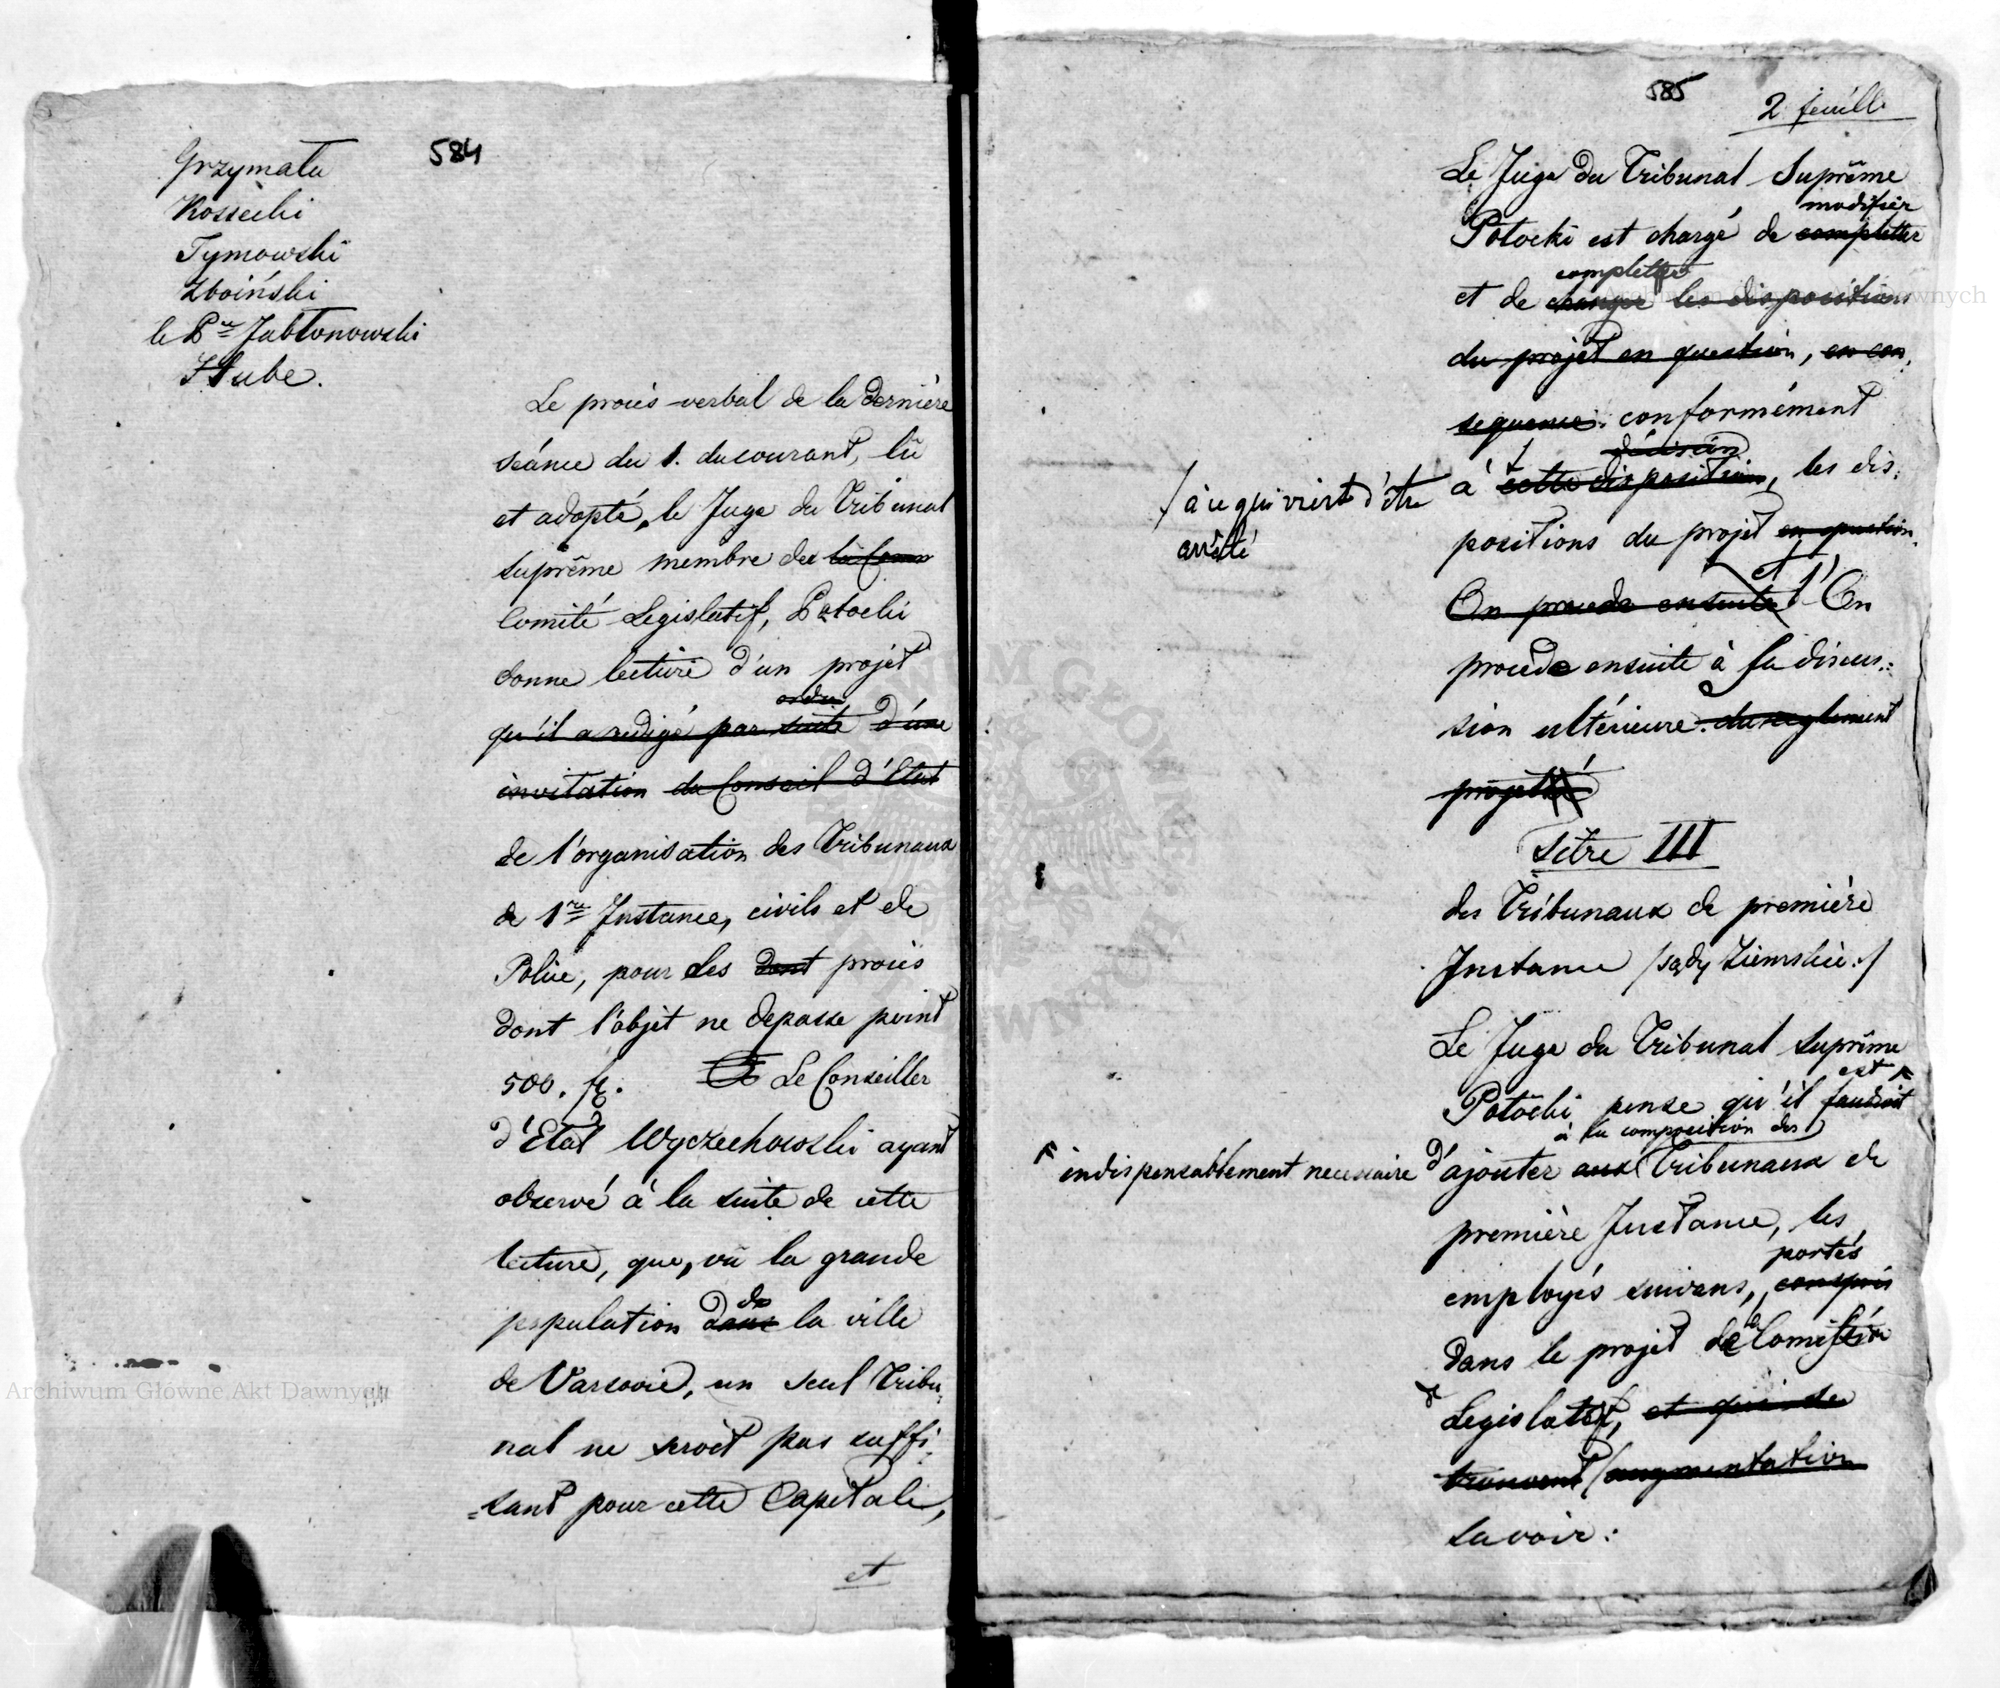 584
Grzymała
Kossecki
Tymowski
Zboiński
le Pce Jabłonowski
Hube.
Le procès-verbal de la dernière
séance du 1. du courant, lû
et adopté, le Juge du Tribunal
suprême membre du la Com
Comité Legislatif, Potocki
donne lecture d'un projet
ordre
qu'il a redigé par suite d'une
invitation du Conseil d'Etat
de l'organisation des Tribunaux
de 1re Instance, civils et de
Police, pour les dont procès
dont l'objet ne depasse point
500. fl. Le Conseiller
d'Etat Wyczechowski ayant
observé à la suite de cette
lecture, que, vû la grande
de
population dans la ville
de Varsovie, un seul Tribu-
nal ne seroit pas suffi-
=sant pour cette Capitale,
et
585
2 feuille
Le Juge du Tribunal Suprême
modifier
Potocki est chargé de completter
completter
et de changer les dispositions
du projet en question, en con-
sequence. conformément
décision
à cette disposition, les dis-
/ à ce qui vient d'être
arrêté
positions du projet en question.
et
On procede ensuite l'On
procède ensuite à la discus-
sion ultérieure du reglement
projetté
Titre III
des Tribunaux de première
Instance /sądy Ziemskie./
Le Juge du Tribunal suprême
est
Potocki pense qu'il faudroit
à la composition des
indispensablement necessaire
d'ajouter aux Tribunaux de
première Instance, les
portés
employés suivans, compris
dans le projet de Comité
Legislatif, et qui se
trouvent /augmentation
savoir:
Archiwum Główne Akt Dawnych